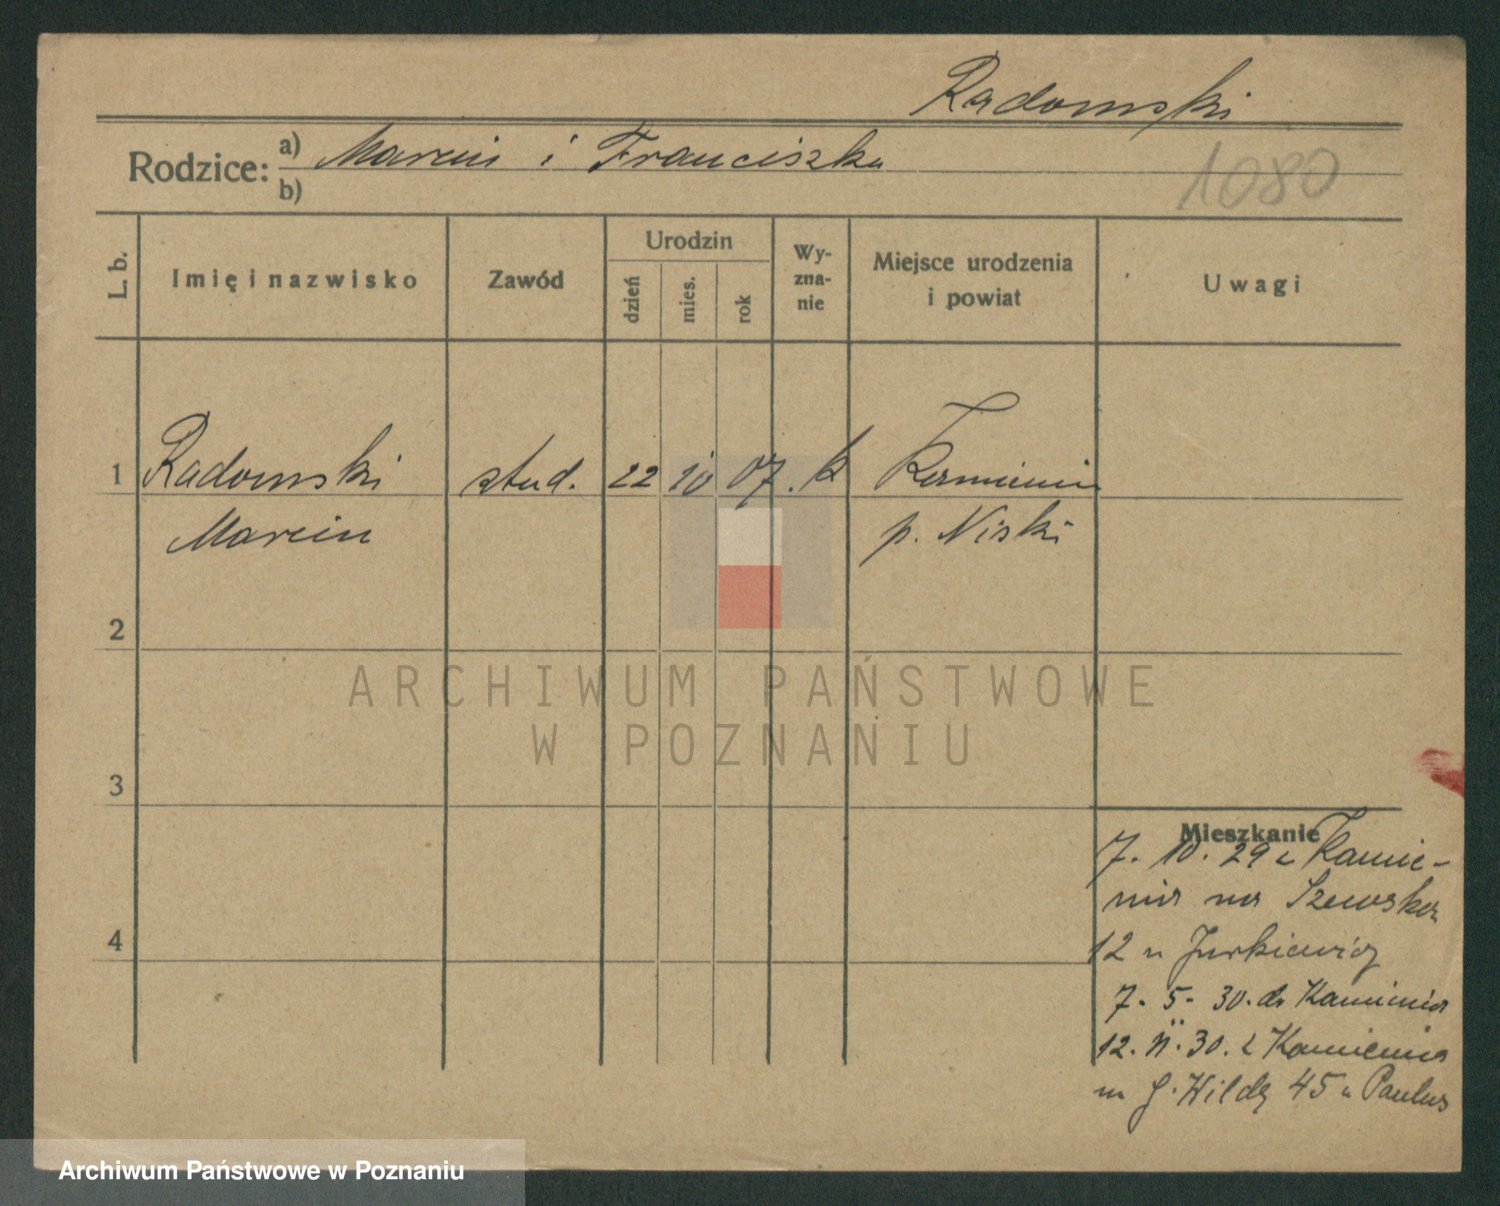 Radomski
Rodzice: a) Marcin i Franciszka
b)
1080
L. b.
Imię i nazwisko
Zawód
Urodzin
dzień
mies.
rok
Wy-
zna-
nie
Miejsce urodzenia
i powiat
Uwagi
1 Radomski stud. 22 10 07. k Kamienin
Marcin p. Niski
2
3
4
Mieszkanie
7. 10. 29 z Kamie-
nia na Szewska
12 u Jurkiewicz
7. 5. 30. do Kamienia
12. 11. 30. z Kamienia
na G. Wildę 45 u Paulus
ARCHIWUM PAŃSTWOWE
W POZNANIU
Archiwum Państwowe w Poznaniu